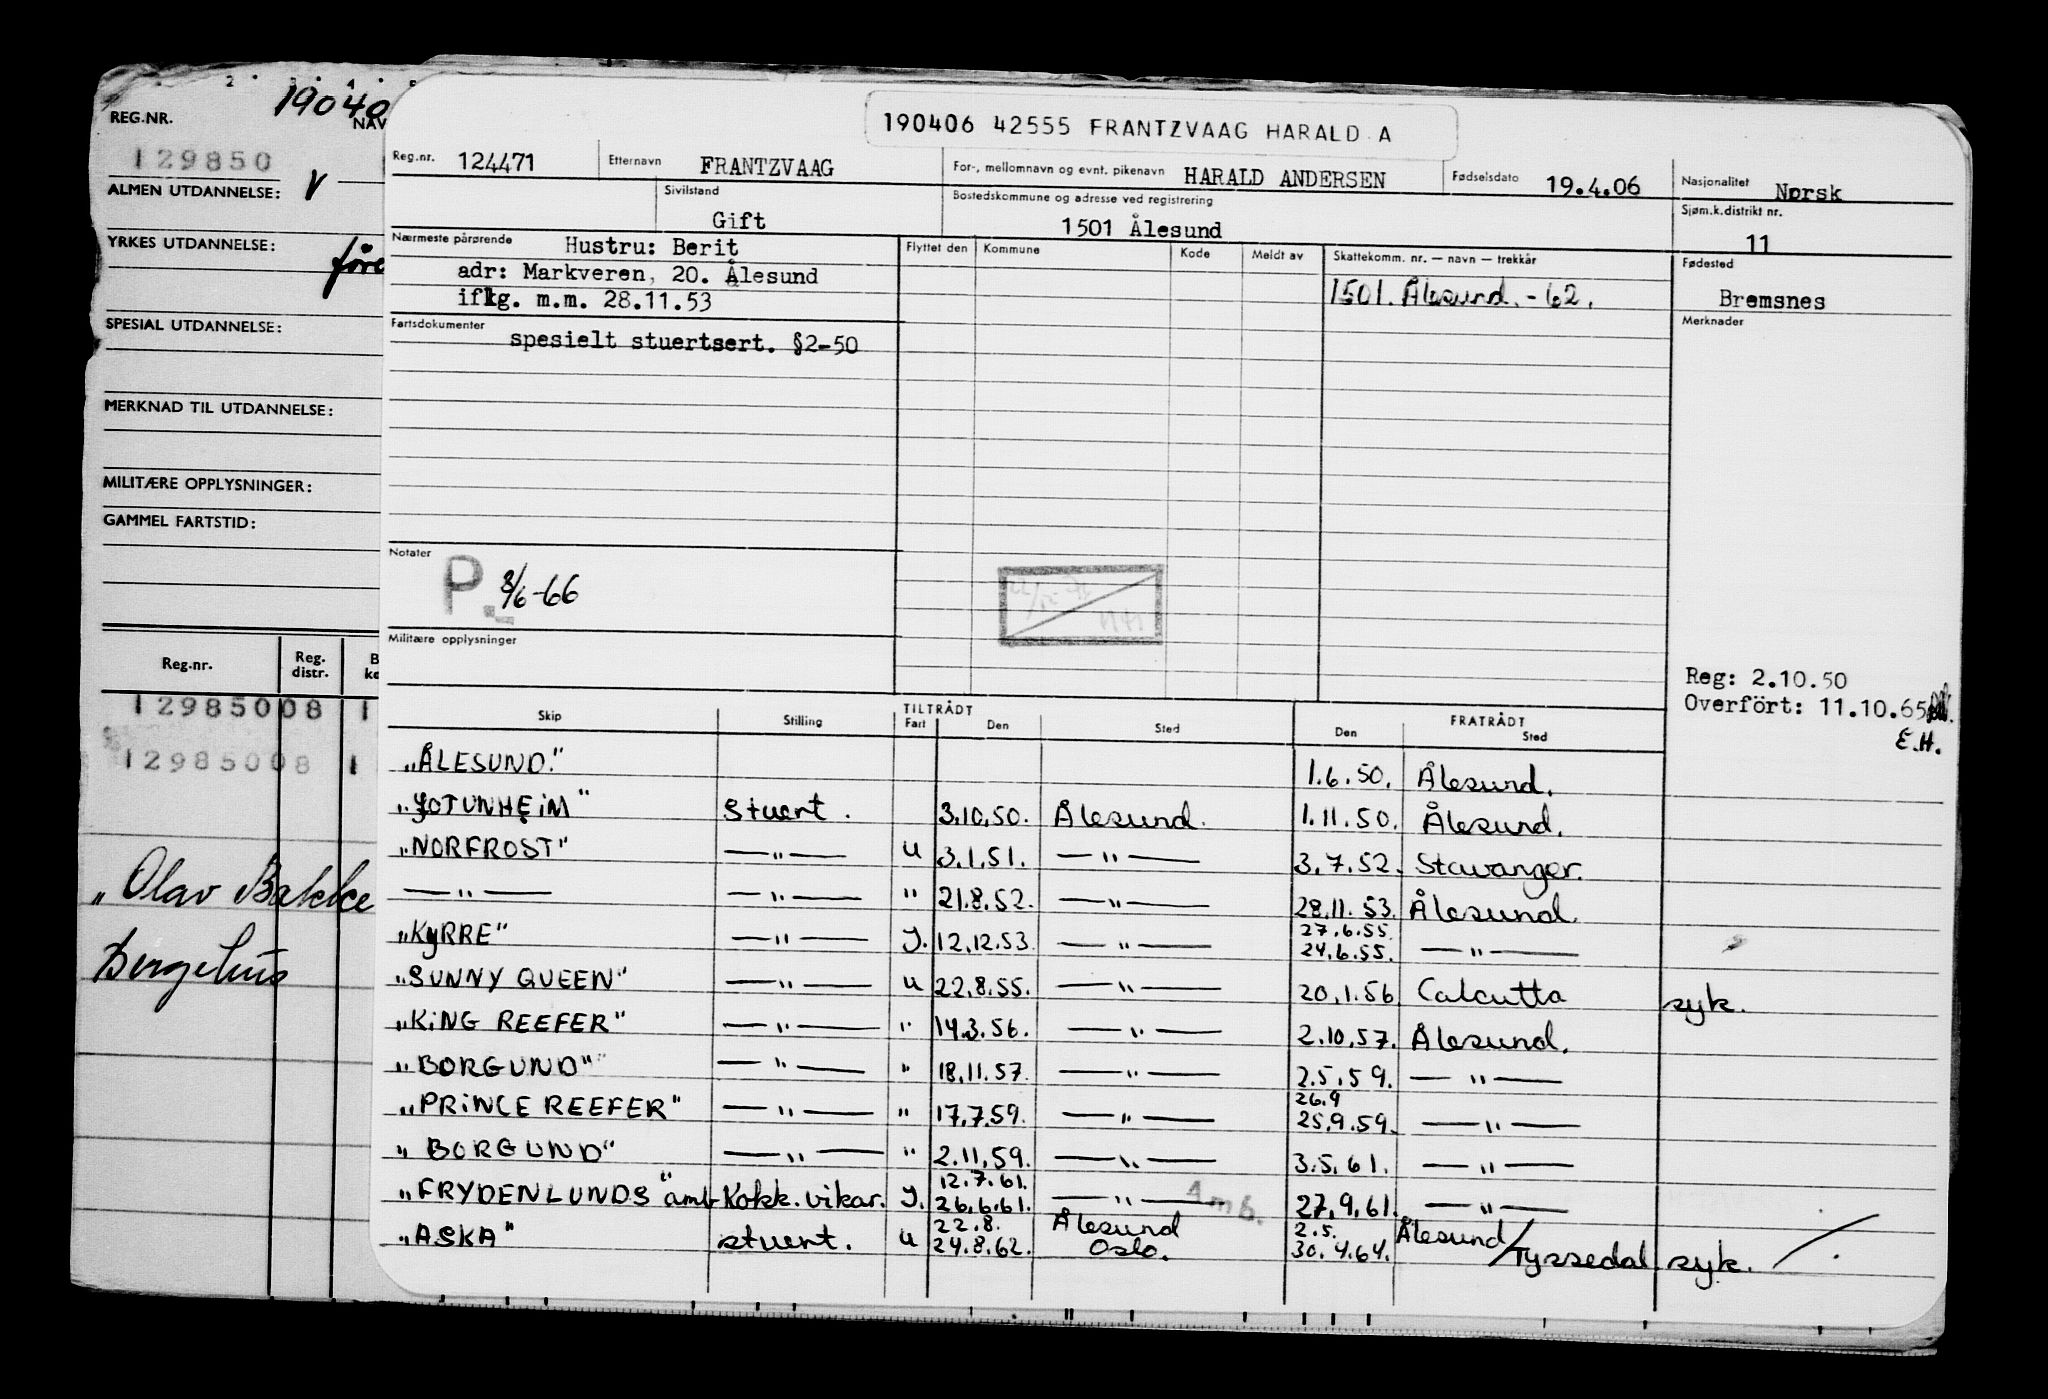 REG.NR.
19040
NAV
129850
ALMEN UTDANNELSE: V
YRKES UTDANNELSE:
føre
SPESIAL UTDANNELSE:
MERKNAD TIL UTDANNELSE:
MILITÆRE OPPLYSNINGER:
GAMMEL FARTSTID:
Reg.nr. Reg. distr. B ko
12985008 1
12985008 1
„Olav Bakke
Bergehus
190406 42555 FRANTZVAAG HARALD A
Reg.nr. 124471 Etternavn FRANTZVAAG For-, mellomnavn og evnt. pikenavn HARALD ANDERSEN Fødselsdato 19.4.06 Nasjonalitet Norsk
Sivilstand Gift Bostedskommune og adresse ved registrering 1501 Ålesund Sjøm.k.distrikt nr. 11
Nærmeste pårørende Hustru: Berit Flyttet den Kommune Kode Meldt av Skattekomm. nr. — navn — trekkår Fødested
adr: Markveren, 20. Ålesund 1501. Ålesund. -62. Bremsnes
iflg. m.m. 28.11.53
Fartsdokumenter Merknader
spesielt stuertsert. §2-50
Notater
P. 3/6-66
Militære opplysninger
Reg: 2.10.50
Overfört: 11.10.65
E.H.
TILTRÅDT FRATRÅDT
Skip Stilling Fart Den Sted Den Sted
„ÅLESUND." 1.6.50. Ålesund.
„JOTUNHEiM" Stuert. 3.10.50. Ålesund. 1.11.50. Ålesund.
„NORFROST" —„— u 3.1.51. —„— 3.7.52. Stavanger.
—„— —„— " 21.8.52. —„— 28.11.53. Ålesund.
27.6.55.
„KyRRE" —„— J. 12.12.53. —„— 24.6.55. —„—
„SUNNY QUEEN" —„— u 22.8.55. —„— 20.1.56 Calcutta syk.
„KiNG REEFER" —„— " 14.3.56. —„— 2.10.57. Ålesund.
„BORGUND" —„— " 18.11.57. —„— 2.5.59. —„—
26.9
„PRiNCE REEFER" —„— " 17.7.59. —„— 25.9.59. —„—
„BORGUND" —„— " 2.11.59. —„— 3.5.61. —„—
12.7.61.
„FRYDENLUNDS" amb Kokk. vikar. J. 26.6.61. —„— Amb. 27.9.61. —„—
22.8. Ålesund 2.5. Ålesund/
„ASKA" stuert. u 24.8.62. Oslo. 30.4.64. Tyssedal syk.